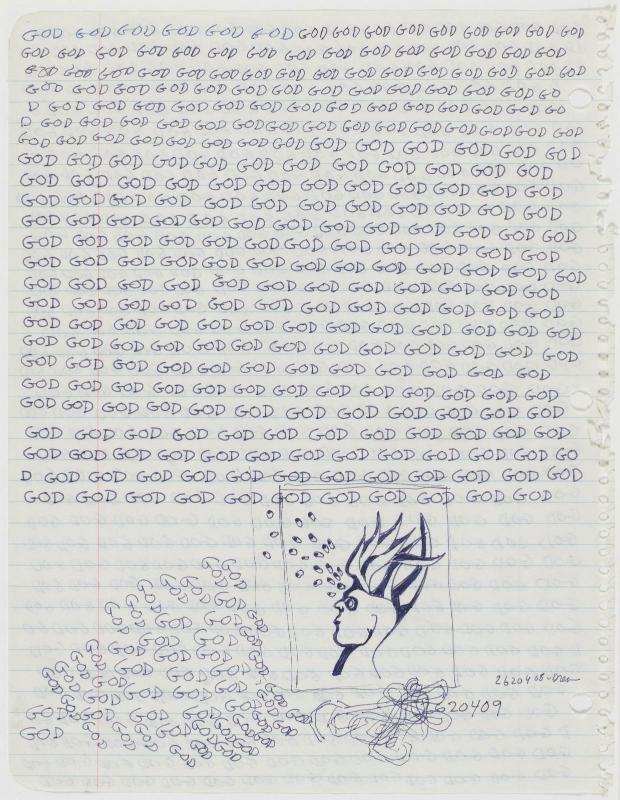 GOD GOD GOD GOD GOD GOD GOD GOD GOD GOD GOD GOD GOD GOD GOD
GOD GOD GOD GOD GOD GOD GOD GOD GOD GOD GOD GOD GOD GOD GOD
GOD GOD GOD GOD GOD GOD GOD GOD GOD GOD GOD GOD GOD GOD GOD GOD
GOD GOD GOD GOD GOD GOD GOD GOD GOD GOD GOD GOD GOD GOD GO
D GOD GOD GOD GOD GOD GOD GOD GOD GOD GOD GOD GOD GOD GO
D GOD GOD GOD GOD GOD GOD GOD GOD GOD GOD GOD GOD GOD GOD
GOD GOD GOD GOD GOD GOD GOD GOD GOD GOD GOD GOD GOD GOD
GOD GOD GOD GOD GOD GOD GOD GOD GOD GOD GOD GOD
GOD GOD GOD GOD GOD GOD GOD GOD GOD GOD GOD GOD
GOD GOD GOD GOD GOD GOD GOD GOD GOD GOD GOD GOD
GOD GOD GOD GOD GOD GOD GOD GOD GOD GOD GOD GOD GOD
GOD GOD GOD GOD GOD GOD GOD GOD GOD GOD GOD GOD
GOD GOD GOD GOD GOD GOD GOD GOD GOD GOD GOD GOD GOD
GOD GOD GOD GOD GOD GOD GOD GOD GOD GOD GOD GOD
GOD GOD GOD GOD GOD GOD GOD GOD GOD GOD GOD GOD
GOD GOD GOD GOD GOD GOD GOD GOD GOD GOD GOD GOD GOD
GOD GOD GOD GOD GOD GOD GOD GOD GOD GOD GOD GOD GOD
GOD GOD GOD GOD GOD GOD GOD GOD GOD GOD GOD GOD
GOD GOD GOD GOD GOD GOD GOD GOD GOD GOD GOD GOD
GOD GOD GOD GOD GOD GOD GOD GOD GOD GOD GOD GOD
GOD GOD GOD GOD GOD GOD GOD GOD GOD GOD GOD GOD
GOD GOD GOD GOD GOD GOD GOD GOD GOD GOD GOD GOD GO
D GOD GOD GOD GOD GOD GOD GOD GOD GOD GOD GOD GOD
GOD GOD GOD GOD GOD GOD GOD GOD GOD GOD GOD
GOD GOD
GOD GOD GOD GOD GOD
GOD GOD GOD GOD GOD
GOD GOD GOD GOD GOD
GOD GOD GOD GOD GOD
GOD GOD GOD GOD GOD
GOD GOD GOD GOD GOD GOD
GOD GOD GOD GOD GOD GOD GOD
GOD GOD GOD GOD GOD GOD GOD
GOD GOD GOD GOD GOD GOD
2620408-Drew
2620409